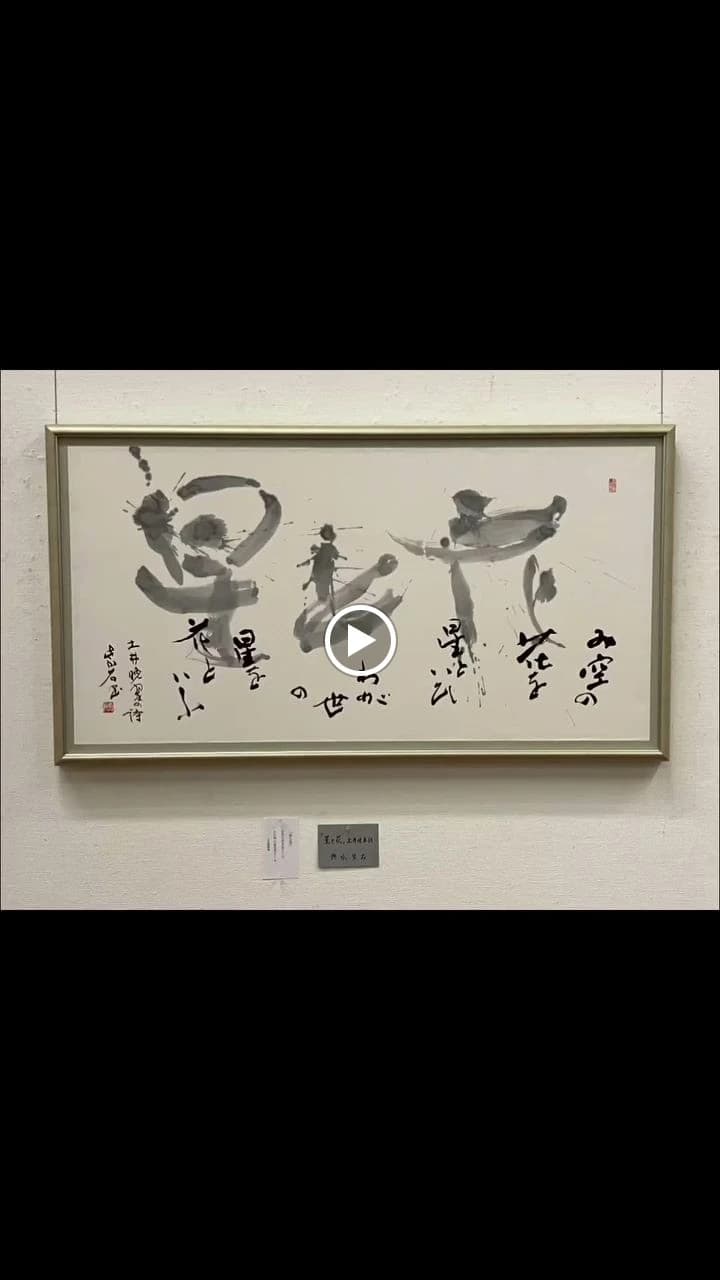 花と星
み空の
花を
星といひ
わが
世の
星を
花といふ
土井晩翠の詩
「星と花」土井晩翠詩